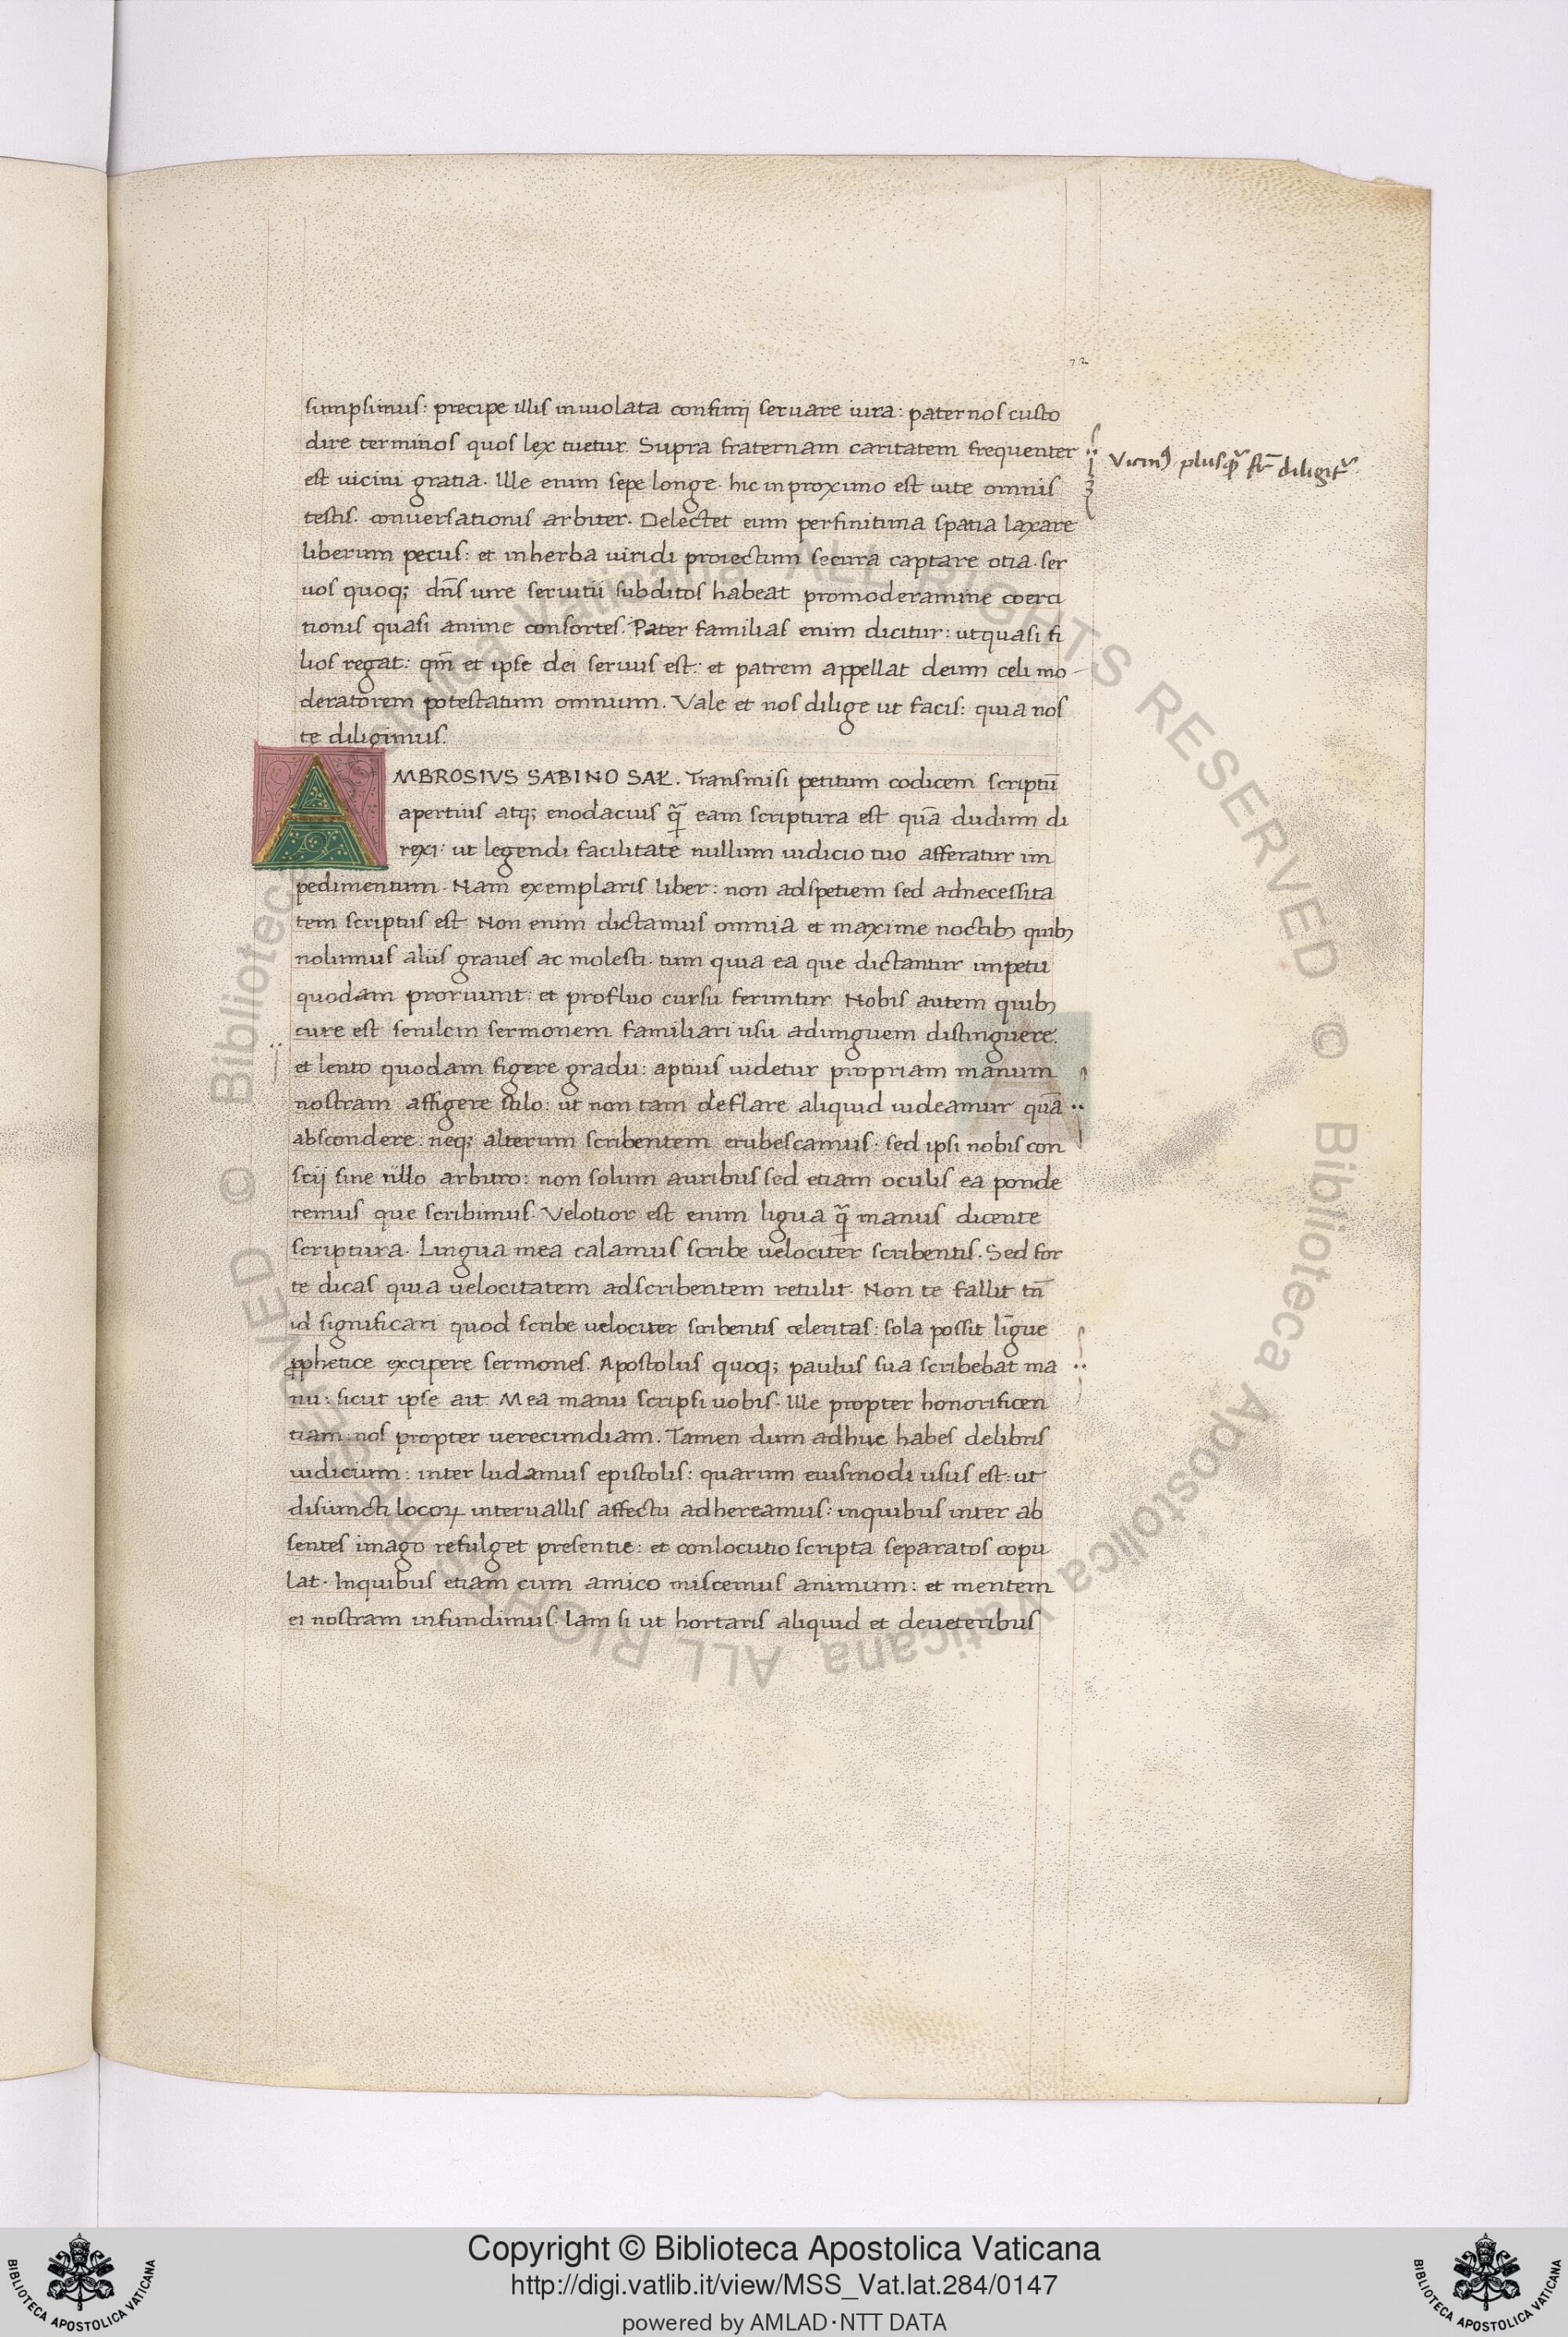 72
sumpsimus: precipe illis inuiolata confinij seruare iura: paternos custo
dire terminos quos lex tuetur. Supra fraternam caritatem frequenter
est uicini gratia. Ille enim sepe longe. hic inproximo est uite omnis
testis. conuersationis arbiter. Delectet eum perfinitima spatia laxare
liberum pecus: et inherba uiridi proiectum secura captare otia. ser
uos quoq; dn̄s iure seruitii subditos habeat promoderamine coerci
tionis quasi anime consortes. Pater familias enim dicitur: utquasi fi
lios regat: qm̄ et ipse dei seruus est: et patrem appellat deum celi mo-
deratorem potestatum omnium. Vale et nos dilige ut facis: quia nos
te diligimus.
Vicinꝰ plusq̃ fr̄ diligit̃.
AMBROSIVS SABINO SAŁ. Transmisi petitum codicem scriptū
apertius atq; enodacius q̃ eam scriptura est quā dudum di
rexi: ut legendi facilitate nullum iudicio tuo afferatur im
pedimentum. Nam exemplaris liber: non adspetiem sed adnecessita
tem scriptus est. Non enim dictamus omnia et maxime noctibꝫ quibꝫ
nolumus aliis graues ac molesti. tum quia ea que dictantur impetu
quodam proruunt: et profluo cursu feruntur. Nobis autem quibꝫ
cure est senilem sermonem familiari usu adunguem distinguere.
et lento quodam figere gradu: aptius uidetur propriam manum
nostram affigere stilo: ut non tam deflare aliquid uideamur quā
abscondere: neq; alterum scribentem erubescamus: sed ipsi nobis con
scij sine ullo arbitro: non solum auribus sed etiam oculis ea ponde
remus que scribimus. Velotior est enim ligua q̃ manus dicente
scriptura. Lingua mea calamus scribe uelociter scribentis. Sed for
te dicas quia uelocitatem adscribentem retulit. Non te fallit tn̄
id significari quod scribe uelociter scribentis celeritas: sola possit līgue
ꝓphetice excipere sermones. Apostolus quoq; paulus sua scribebat ma
nu: sicut ipse ait. Mea manu scripsi uobis. Ille propter honorificen
tiam: nos propter uerecundiam. Tamen dum adhuc habes delibris
iudicium: inter ludamus epistolis: quarum eiusmodi usus est: ut
disiuncti locoꝝ interuallis affectu adhereamus: inquibus inter ab
sentes imago refulget presentie: et conlocutio scripta separatos copu
lat. Inquibus etiam cum amico miscemus animum: et mentem
ei nostram infundimus. Iam si ut hortaris aliquid et deueteribus
© Biblioteca Apostolica Vaticana ALL RIGHTS RESERVED © Biblioteca Apostolica Vaticana ALL RIGHTS RESERVED
Copyright © Biblioteca Apostolica Vaticana
http://digi.vatlib.it/view/MSS_Vat.lat.284/0147
powered by AMLAD·NTT DATA
BIBLIOTECA APOSTOLICA VATICANA
BIBLIOTECA APOSTOLICA VATICANA